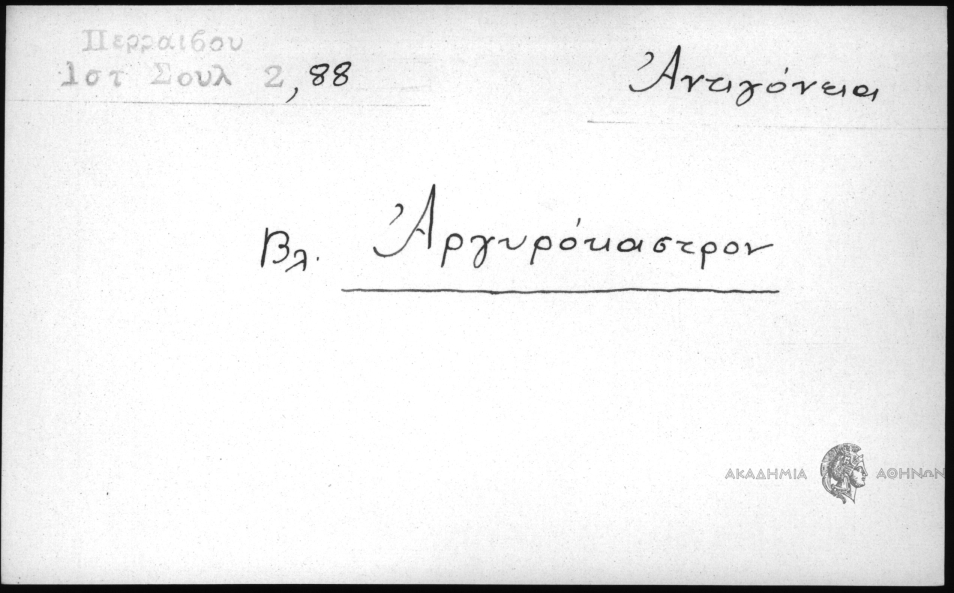 Περραιβου
Ιστ Σουλ 2,88
Ἀντιγόνεια
Βλ. Ἀργυρόκαστρον
ΑΚΑΔΗΜΙΑ ΑΘΗΝΩΝ